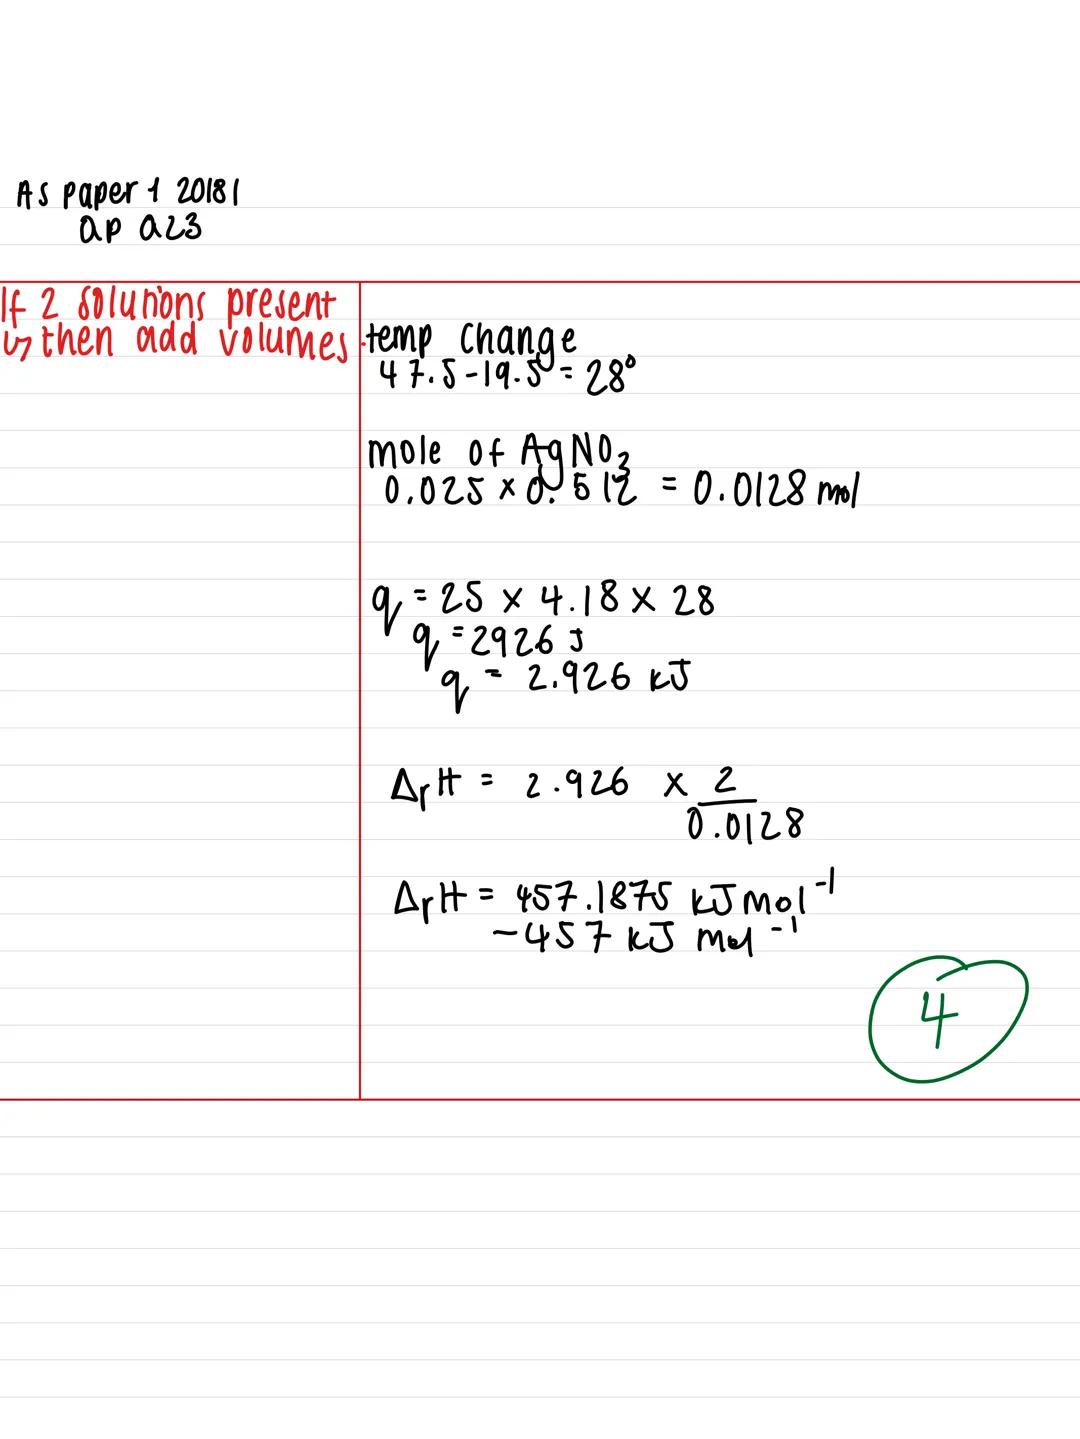 As paper 1 20181
QP Q23
If 2 solutions present
↳ then add volumes
temp change
47.5 - 19.5 = 28°
mole of AgNO₃
0.025 × 0.512 = 0.0128 mol
q = 25 × 4.18 × 28
q = 2926 J
q = 2.926 kJ
ΔrH = 2.926 × 2/0.0128
ΔrH = 457.1875 kJ mol⁻¹
-457 kJ mol⁻¹
4